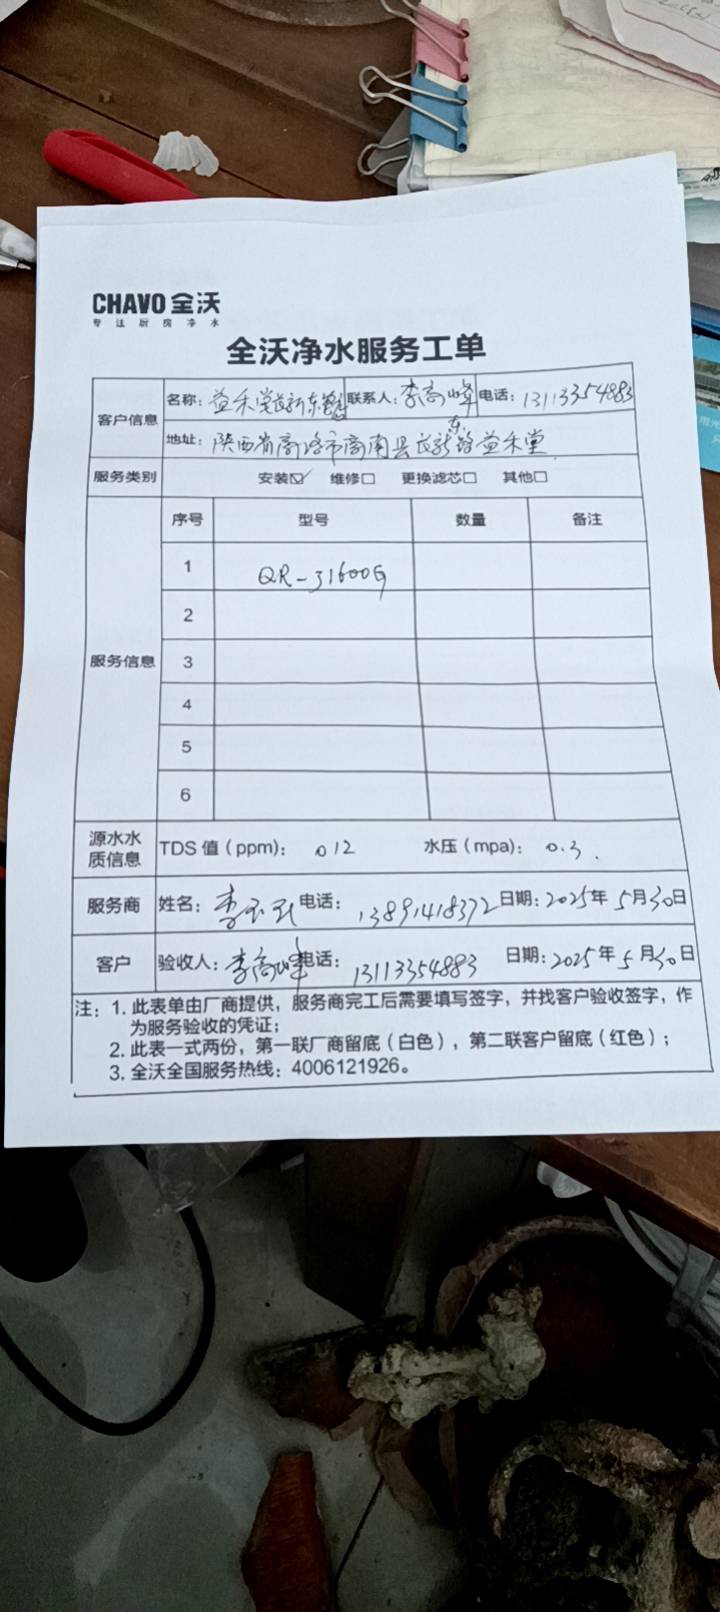 CHAVO 全沃
专注厨房净水
全沃净水服务工单
客户信息 名称：益禾堂长新东路店 联系人：李高峰 电话：13113354883
地址：陕西省商洛市商南县长新东路益禾堂
服务类别 安装☑ 维修□ 更换滤芯□ 其他□
服务信息 序号 型号 数量 备注
1 QR-31600G
2
3
4
5
6
源水水质信息 TDS值（ppm）：012 水压（mpa）：0.3
服务商 姓名：李 电话：13891418372 日期：2025年5月30日
客户 验收人：李高峰 电话：13113354883 日期：2025年5月30日
注：1. 此表单由厂商提供，服务商完工后需要填写签字，并找客户验收签字，作
为服务验收的凭证；
2. 此表一式两份，第一联厂商留底（白色），第二联客户留底（红色）；
3. 全沃全国服务热线：4006121926。